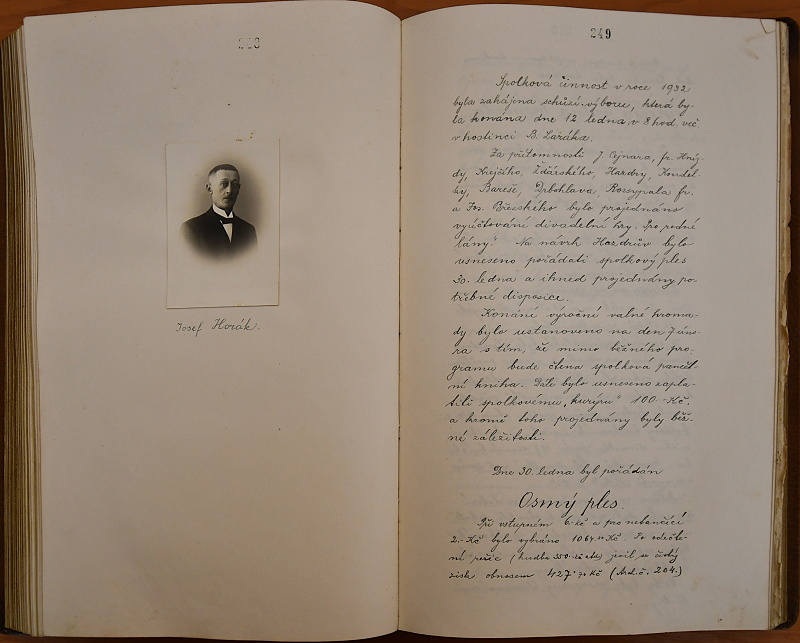 Josef Horák.
249
Spolková činnost v roce 1932
byla zahájena schůzí výboru, která by-
la konána dne 12 ledna v 8 hod. več.
v hostinci B. Lašáka.
Za přítomnosti J. Cejnara, fr. Hný-
dy, Krejčího, Žďárského, Hazdry, Koudel-
ky, Bareše, Drbohlava, Rossypala fr.
a Jos. Březského bylo projednáno
vyúčtování divadelní hry „Pro rodné
lány". Na návrh Hazdrův bylo
usneseno pořádati spolkový ples
30. ledna a ihned projednány po-
třebné disposice.
Konání výroční valné hroma-
dy bylo ustanoveno na den 7 úno-
ra s tím, že mimo běžného pro-
gramu bude čtena spolková pamět-
ní kniha. Dále bylo usneseno zapla-
titi spolkovému „kurýru" 100 Kč.
a kromě toho projednány byly běž-
né záležitosti.
Dne 30. ledna byl pořádán
Osmý ples.
Při vstupném 6.- Kč a pro netančící
2.- Kč bylo vybráno Kč. Po odečte-
ní režie (hudba 350 jevil se čistý
zisk obnosem 427.70 Kč (Arch. č. 204.)